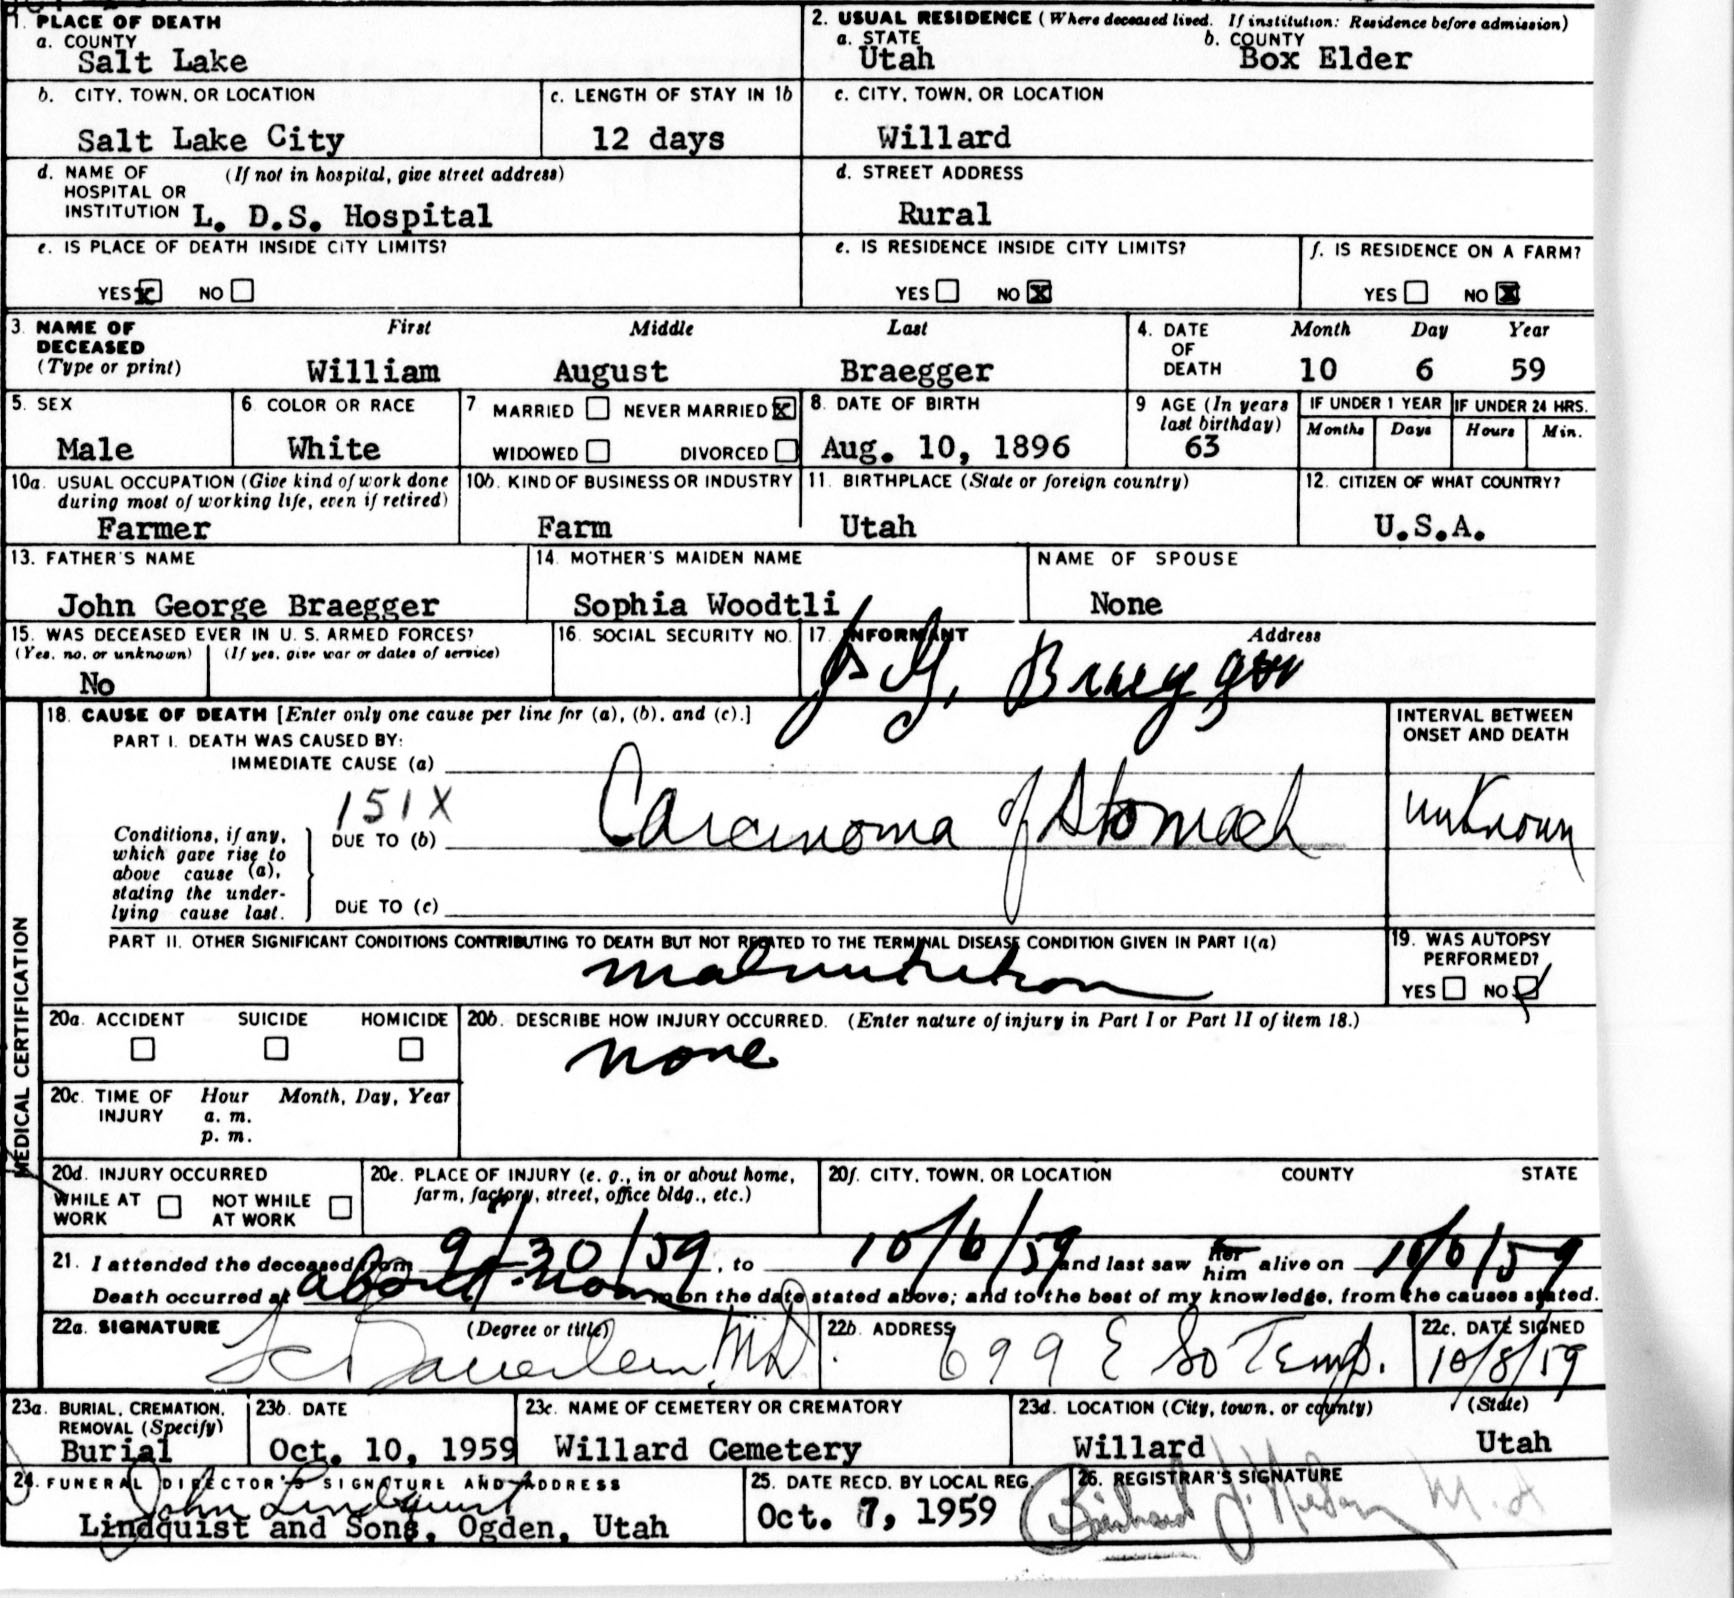 1. PLACE OF DEATH
a. COUNTY
Salt Lake
2. USUAL RESIDENCE (Where deceased lived. If institution: Residence before admission)
a. STATE
Utah
b. COUNTY
Box Elder
b. CITY, TOWN, OR LOCATION
Salt Lake City
c. LENGTH OF STAY IN 1b
12 days
c. CITY, TOWN, OR LOCATION
Willard
d. NAME OF (If not in hospital, give street address)
HOSPITAL OR
INSTITUTION L. D.S. Hospital
d. STREET ADDRESS
Rural
e. IS PLACE OF DEATH INSIDE CITY LIMITS?
YES x NO
e. IS RESIDENCE INSIDE CITY LIMITS?
YES NO X
f. IS RESIDENCE ON A FARM?
YES NO X
3. NAME OF DECEASED
(Type or print)
First Middle Last
William August Braegger
4. DATE OF DEATH
Month Day Year
10 6 59
5. SEX
Male
6. COLOR OR RACE
White
7 MARRIED NEVER MARRIED X
WIDOWED DIVORCED
8. DATE OF BIRTH
Aug. 10, 1896
9 AGE (In years
last birthday)
63
IF UNDER 1 YEAR
Months Days
IF UNDER 24 HRS.
Hours Min.
10a. USUAL OCCUPATION (Give kind of work done
during most of working life, even if retired)
Farmer
10b. KIND OF BUSINESS OR INDUSTRY
Farm
11. BIRTHPLACE (State or foreign country)
Utah
12. CITIZEN OF WHAT COUNTRY?
U.S.A.
13. FATHER'S NAME
John George Braegger
14. MOTHER'S MAIDEN NAME
Sophia Woodtli
NAME OF SPOUSE
None
15. WAS DECEASED EVER IN U. S. ARMED FORCES?
(Yes, no, or unknown) (If yes, give war or dates of service)
No
16. SOCIAL SECURITY NO.
17. INFORMANT Address
G. Braegger
18. CAUSE OF DEATH [Enter only one cause per line for (a), (b), and (c).]
PART I. DEATH WAS CAUSED BY:
IMMEDIATE CAUSE (a)
INTERVAL BETWEEN
ONSET AND DEATH
151X
Conditions, if any,
which gave rise to
above cause (a),
stating the under-
lying cause last.
DUE TO (b) Carcinoma of Stomach
unknown
DUE TO (c)
PART II. OTHER SIGNIFICANT CONDITIONS CONTRIBUTING TO DEATH BUT NOT RELATED TO THE TERMINAL DISEASE CONDITION GIVEN IN PART I(a)
malnutrition
19. WAS AUTOPSY
PERFORMED?
YES NO
MEDICAL CERTIFICATION
20a. ACCIDENT SUICIDE HOMICIDE
20b. DESCRIBE HOW INJURY OCCURRED. (Enter nature of injury in Part I or Part II of item 18.)
none
20c. TIME OF
INJURY
Hour Month, Day, Year
a. m.
p. m.
20d. INJURY OCCURRED
WHILE AT
WORK
NOT WHILE
AT WORK
20e. PLACE OF INJURY (e. g., in or about home,
farm, factory, street, office bldg., etc.)
20f. CITY, TOWN, OR LOCATION COUNTY STATE
21. I attended the deceased from 9/30/59, to 10/6/59 and last saw her him alive on 10/6/59
Death occurred at about noon m on the date stated above; and to the best of my knowledge, from the causes stated.
22a. SIGNATURE (Degree or title)
M.D.
22b. ADDRESS
699 E So Temp.
22c. DATE SIGNED
10/8/59
23a. BURIAL, CREMATION,
REMOVAL (Specify)
Burial
23b. DATE
Oct. 10, 1959
23c. NAME OF CEMETERY OR CREMATORY
Willard Cemetery
23d. LOCATION (City, town, or county) (State)
Willard Utah
24. FUNERAL DIRECTOR'S SIGNATURE AND ADDRESS
John Lindquist
Lindquist and Sons, Ogden, Utah
25. DATE RECD. BY LOCAL REG.
Oct. 7, 1959
26. REGISTRAR'S SIGNATURE
M.D